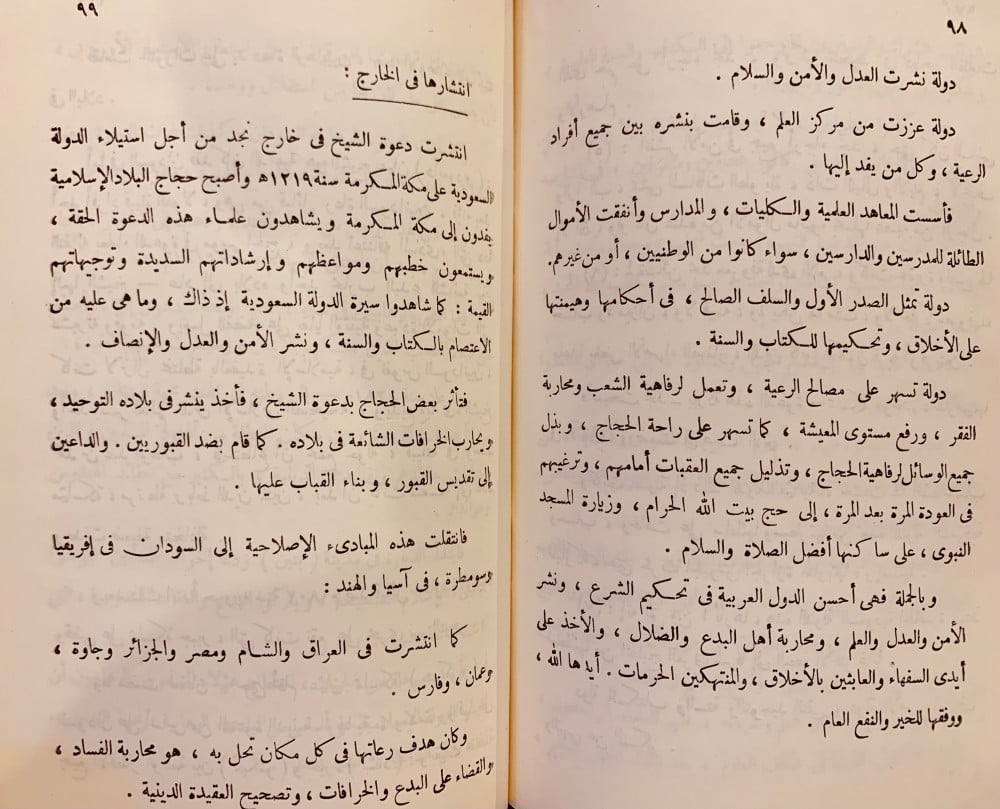 ٩٨
دولة نشرت العدل والأمن والسلام .
دولة عززت من مركز العلم ، وقامت بنشره بين جميع أفراد
الرعية ، وكل من يفد إليها .
فأسست المعاهد العلمية والكليات ، والمدارس وأنفقت الأموال
الطائلة للمدرسين والدارسين ، سواء كانوا من الوطنيين ، أو من غيرهم .
دولة تمثل الصدر الأول والسلف الصالح ، فى أحكامها وهيمنتها
على الأخلاق ، وتحكيمها للكتاب والسنة .
دولة تسهر على مصالح الرعية ، وتعمل لرفاهية الشعب ومحاربة
الفقر ، ورفع مستوى المعيشة ، كما تسهر على راحة الحجاج ، وبذل
جميع الوسائل لرفاهية الحجاج ، وتذليل جميع العقبات أمامهم ، وترغيبهم
فى العودة المرة بعد المرة ، إلى حج بيت الله الحرام ، وزيارة المسجد
النبوى ، على ساكنها أفضل الصلاة والسلام .
وبالجملة فهى أحسن الدول العربية فى تحكيم الشرع ، ونشر
الأمن والعدل والعلم ، ومحاربة أهل البدع والضلال ، والأخذ على
أيدى السفهاء والعابثين بالأخلاق ، والمنتهكين الحرمات . أيدها الله ،
ووفقها للخير والنفع العام .
٩٩
انتشارها فى الخارج :
انتشرت دعوة الشيخ فى خارج نجد من أجل استيلاء الدولة
السعودية على مكة المكرمة سنة ١٢١٩ه وأصبح حجاج البلاد الإسلامية
يفدون إلى مكة المكرمة ويشاهدون علماء هذه الدعوة الحقة ،
ويستمعون خطبهم ومواعظهم وإرشاداتهم السديدة وتوجيهاتهم
القيمة : كما شاهدوا سيرة الدولة السعودية إذ ذاك ، وما هى عليه من
الاعتصام بالكتاب والسنة ، ونشر الأمن والعدل والإنصاف .
فتأثر بعض الحجاج بدعوة الشيخ ، فأخذ ينشر فى بلاده التوحيد ،
ويحارب الخرافات الشائعة فى بلاده . كما قام بضد القبوريين . والداعين
إلى تقديس القبور ، وبناء القباب عليها .
فانتقلت هذه المبادىء الإصلاحية إلى السودان فى إفريقيا
وسومطرة ، فى آسيا والهند :
كما انتشرت فى العراق والشام ومصر والجزائر وجاوة ،
وعمان ، وفارس .
وكان هدف رعاتها فى كل مكان تحل به ، هو محاربة الفساد ،
والقضاء على البدع والخرافات ، وتصحيح العقيدة الدينية .